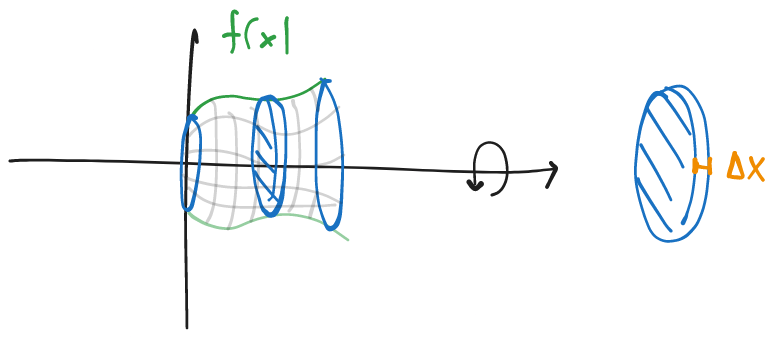 f(x)
Δx